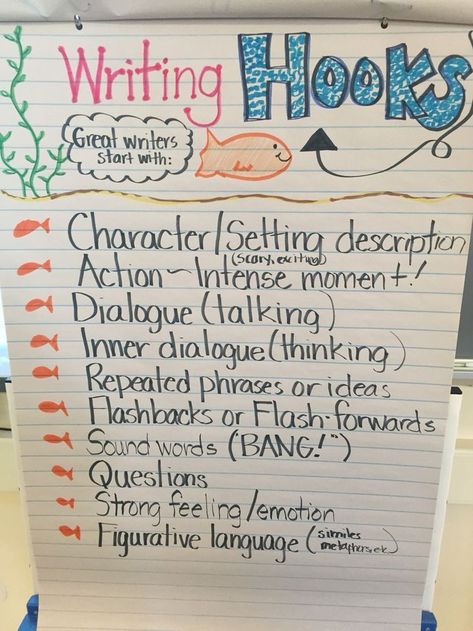 Writing Hooks
Great writers
start with:
Character/Setting description
(scary, exciting)
Action~Intense moment!
Dialogue (talking)
Inner dialogue (thinking)
Repeated phrases or ideas
Flashbacks or Flash-forwards
Sound words ("BANG!")
Questions
Strong feeling/emotion
Figurative language (similes
metaphors, etc)